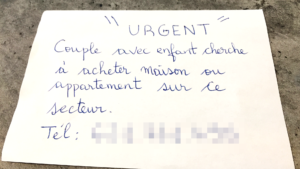 " URGENT "
Couple avec enfant cherche
à acheter maison ou
appartement sur ce
secteur.
Tél :